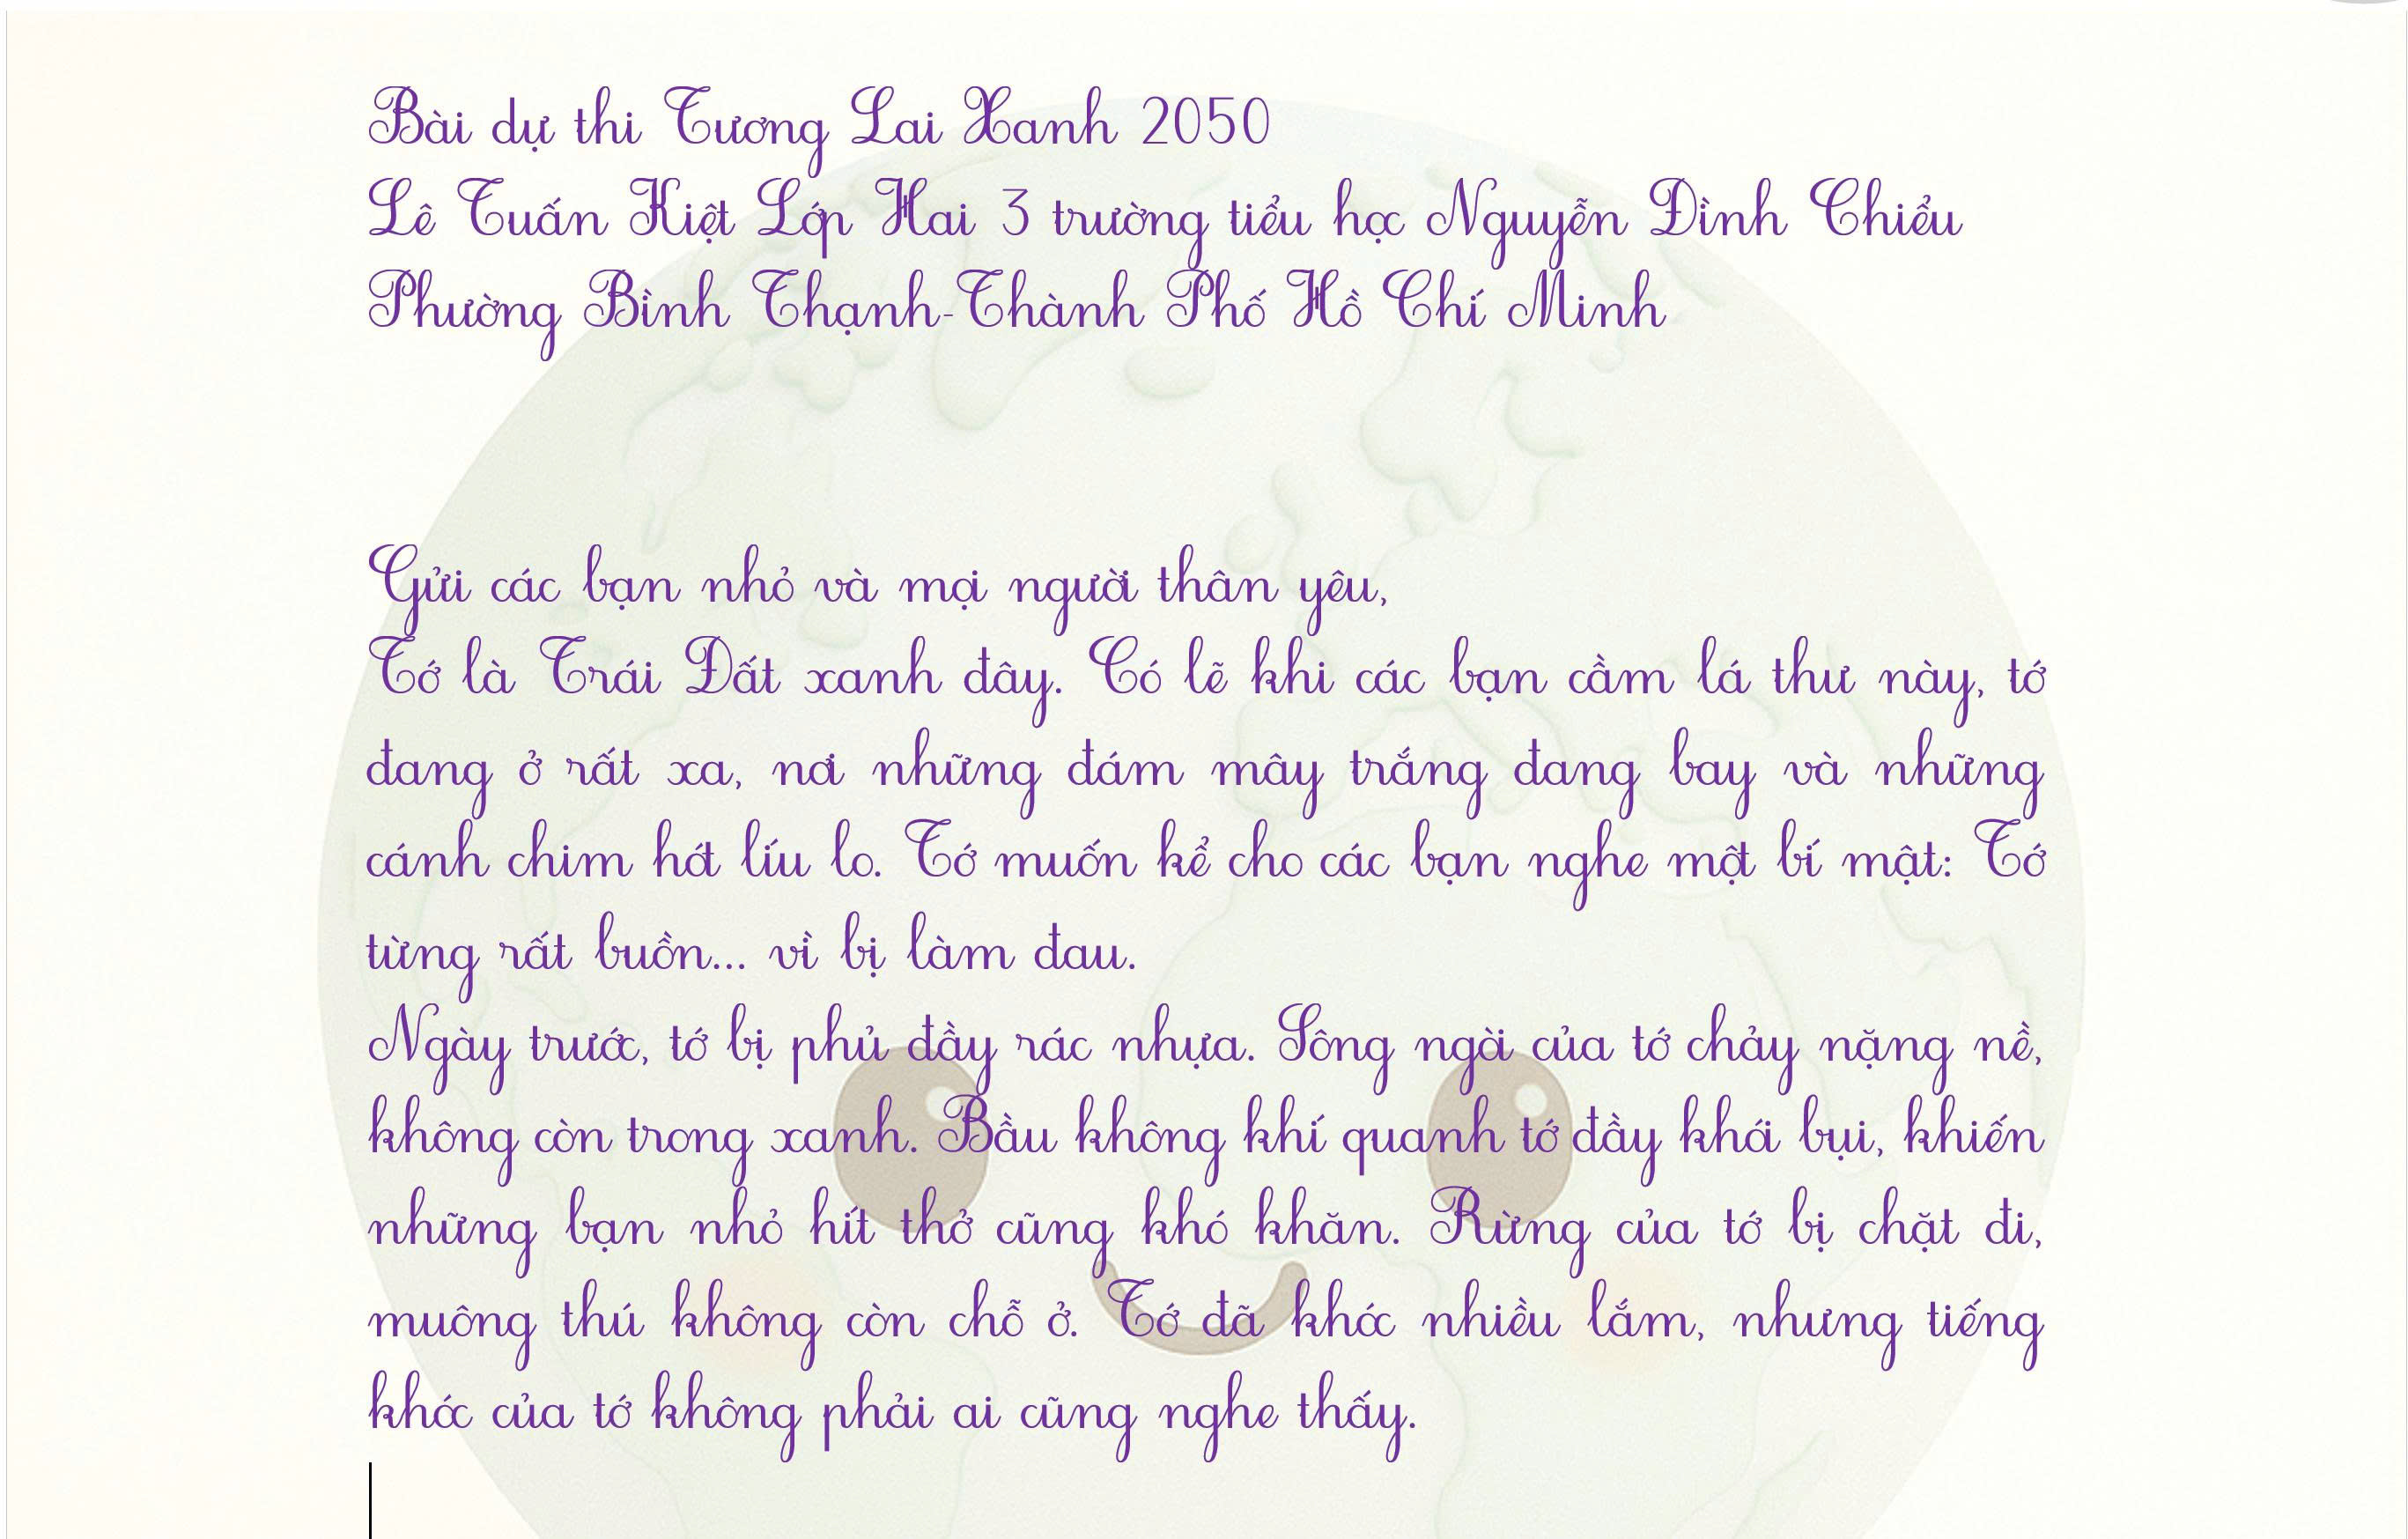 Bài dự thi Tương Lai Xanh 2050
Lê Tuấn Kiệt Lớp Hai 3 trường tiểu học Nguyễn Đình Chiểu
Phường Bình Thạnh-Thành Phố Hồ Chí Minh
Gửi các bạn nhỏ và mọi người thân yêu,
Tớ là Trái Đất xanh đây. Có lẽ khi các bạn cầm lá thư này, tớ
đang ở rất xa, nơi những đám mây trắng đang bay và những
cánh chim hót líu lo. Tớ muốn kể cho các bạn nghe một bí mật: Tớ
từng rất buồn... vì bị làm đau.
Ngày trước, tớ bị phủ đầy rác nhựa. Sông ngòi của tớ chảy nặng nề,
không còn trong xanh. Bầu không khí quanh tớ đầy khói bụi, khiến
những bạn nhỏ hít thở cũng khó khăn. Rừng của tớ bị chặt đi,
muông thú không còn chỗ ở. Tớ đã khóc nhiều lắm, nhưng tiếng
khóc của tớ không phải ai cũng nghe thấy.